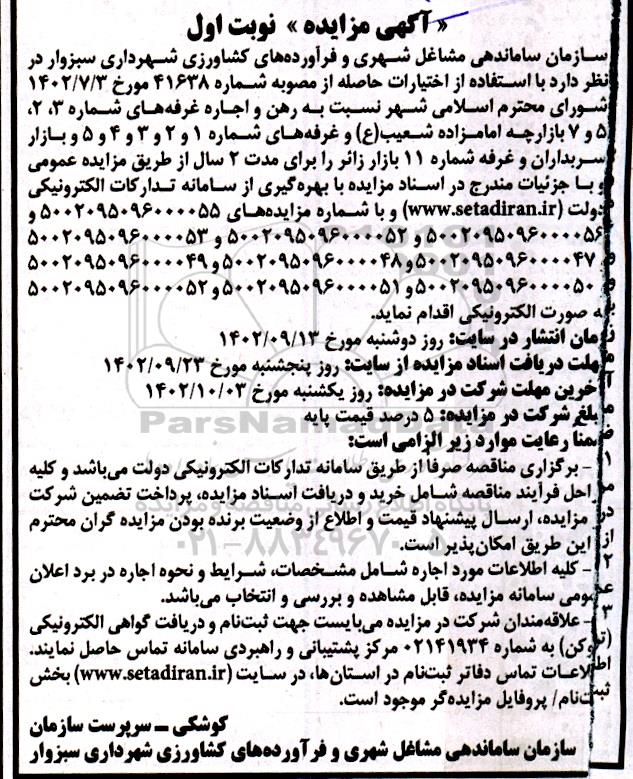 « آگهی مزایده » نوبت اول
سازمان ساماندهی مشاغل شهری و فرآورده‌های کشاورزی شهرداری سبزوار در
نظر دارد با استفاده از اختیارات حاصله از مصوبه شماره ۴۱۶۳۸ مورخ ۱۴۰۲/۷/۳
شورای محترم اسلامی شهر نسبت به رهن و اجاره غرفه‌های شماره ۳، ۲،
۵ و ۷ بازارچه امامزاده شعیب(ع) و غرفه‌های شماره ۱ و ۲ و ۳ و ۴ و ۵ و بازار
سربداران و غرفه شماره ۱۱ بازار زائر را برای مدت ۲ سال از طریق مزایده عمومی
و با جزئیات مندرج در اسناد مزایده با بهره‌گیری از سامانه تدارکات الکترونیکی
دولت (www.setadiran.ir) و با شماره مزایده‌های ۵۰۰۲۰۹۵۰۹۶۰۰۰۰۵۵ و
۵۰۰۲۰۹۵۰۹۶۰۰۰۰۵۶ و ۵۰۰۲۰۹۵۰۹۶۰۰۰۰۵۲ و ۵۰۰۲۰۹۵۰۹۶۰۰۰۰۵۳
و ۵۰۰۲۰۹۵۰۹۶۰۰۰۰۴۷ و ۵۰۰۲۰۹۵۰۹۶۰۰۰۰۴۸ و ۵۰۰۲۰۹۵۰۹۶۰۰۰۰۴۹
و ۵۰۰۲۰۹۵۰۹۶۰۰۰۰۵۰ و ۵۰۰۲۰۹۵۰۹۶۰۰۰۰۵۱ و ۵۰۰۲۰۹۵۰۹۶۰۰۰۰۵۲
به صورت الکترونیکی اقدام نماید.
زمان انتشار در سایت: روز دوشنبه مورخ ۱۴۰۲/۰۹/۱۳
مهلت دریافت اسناد مزایده از سایت: روز پنجشنبه مورخ ۱۴۰۲/۰۹/۲۳
آخرین مهلت شرکت در مزایده: روز یکشنبه مورخ ۱۴۰۲/۱۰/۰۳
مبلغ شرکت در مزایده: ۵ درصد قیمت پایه
ضمنا رعایت موارد زیر الزامی است:
۱ - برگزاری مناقصه صرفاً از طریق سامانه تدارکات الکترونیکی دولت می‌باشد و کلیه
مراحل فرآیند مناقصه شامل خرید و دریافت اسناد مزایده، پرداخت تضمین شرکت
در مزایده، ارسال پیشنهاد قیمت و اطلاع از وضعیت برنده بودن مزایده گران محترم
از این طریق امکان‌پذیر است.
۲ - کلیه اطلاعات مورد اجاره شامل مشخصات، شرایط و نحوه اجاره در برد اعلان
عمومی سامانه مزایده، قابل مشاهده و بررسی و انتخاب می‌باشد.
۳ - علاقه‌مندان شرکت در مزایده می‌بایست جهت ثبت‌نام و دریافت گواهی الکترونیکی
(توکن) به شماره ۰۲۱۴۱۹۳۴ مرکز پشتیبانی و راهبردی سامانه تماس حاصل نمایند.
اطلاعات تماس دفاتر ثبت‌نام در استان‌ها، در سایت (www.setadiran.ir) بخش
ثبت‌نام/ پروفایل مزایده‌گر موجود است.
کوشکی ــ سرپرست سازمان
سازمان ساماندهی مشاغل شهری و فرآورده‌های کشاورزی شهرداری سبزوار